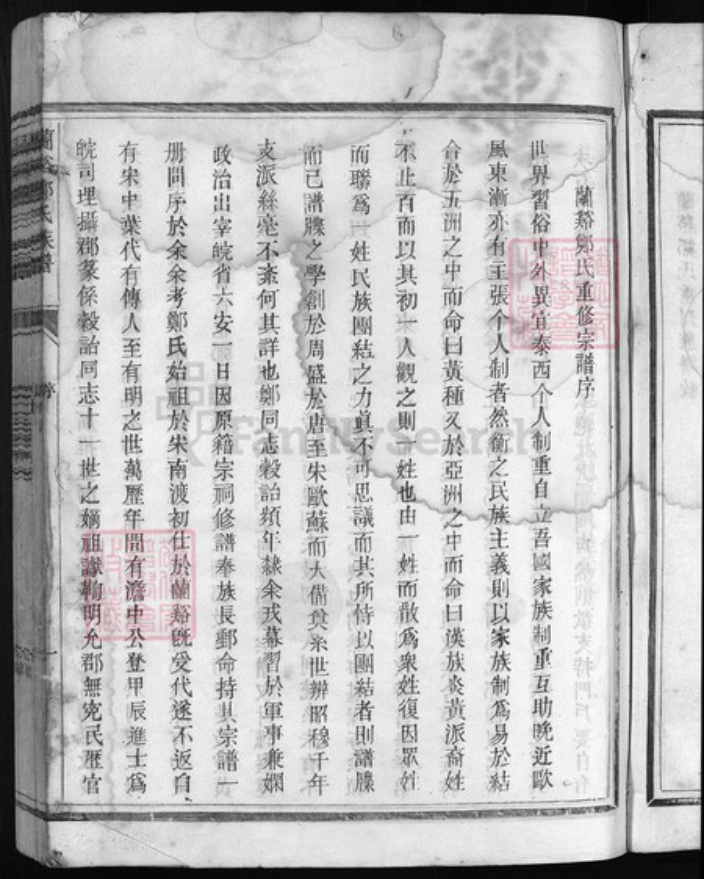 蘭谿鄭氏重修宗譜序
世界習俗中外異宜泰西个人制重自立吾國家族制重互助晚近歐
風東漸亦有主張个人制者然衡之民族主義則以家族制爲易於結
合於五洲之中而命曰黃種又於亞洲之中而命曰漢族炎黃派裔姓
不止百而以其初一人觀之則一姓也由一姓而散爲衆姓復因眾姓
而聯爲一姓民族團結之力眞不可思議而其所恃以團結者則譜牒
而已譜牒之學創於周盛於唐至宋歐蘇而大備奠系世辨昭穆千年
支派絲毫不紊何其詳也鄭同志穀詒頻年隸余戎幕習於軍事兼嫻
政治出宰皖省六安一日因原籍宗祠修譜奉族長郵命持其宗譜一
册問序於余余考鄭氏始祖於宋南渡初仕於蘭谿旣受代遂不返自
有宋中葉代有傳人至有明之世萬歷年間有澹中公登甲辰進士爲
皖司理攝郡篆係穀詒同志十一世之嫡祖讞鞫明允郡無寃民歷官
蘭谿鄭氏族譜
序
一
FamilySearch